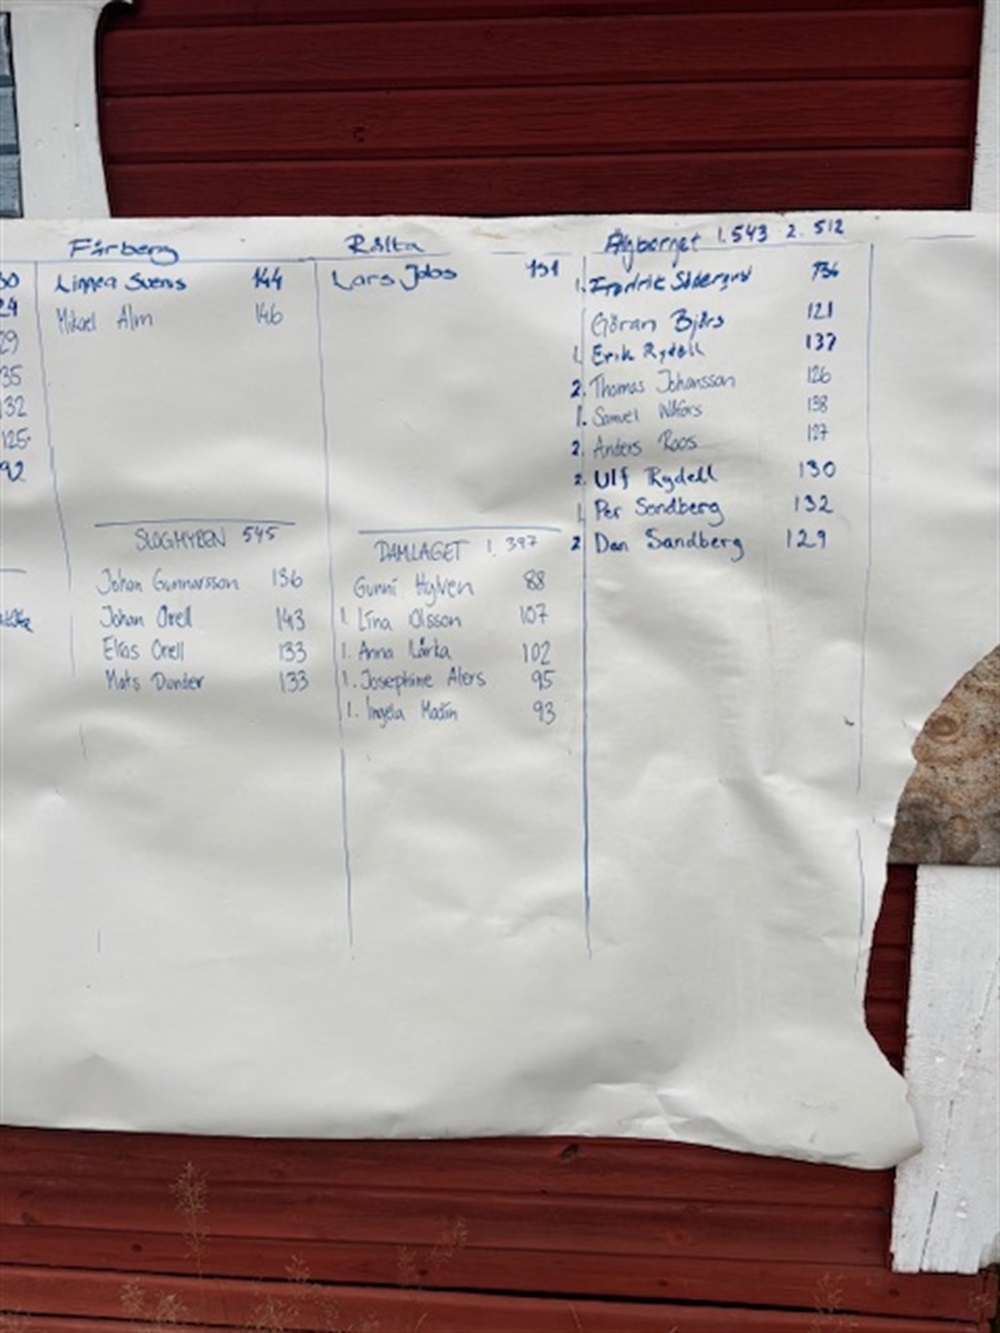 30
24
29
35
132
125
92
Fårberg
Linnea Svens 144
Mikael Alm 146
SLOGMYREN 545
Johan Gunnarsson 136
Johan Orell 143
Elias Orell 133
Mats Dunder 133
Rälta
Lars Jobs 151
DAMLAGET 1. 397
Gunni Hylven 88
1. Lina Olsson 107
1. Anna Lårka 102
1. Josephine Alers 95
1. Ingela Modin 93
Älgberget 1. 543 2. 512
1. Fredrik Söderlund 136
Göran Bjärs 121
1. Erik Rydell 137
2. Thomas Johansson 126
1. Samuel 138
2. Anders Roos 127
2. Ulf Rydell 130
1. Per Sandberg 132
2 Dan Sandberg 129